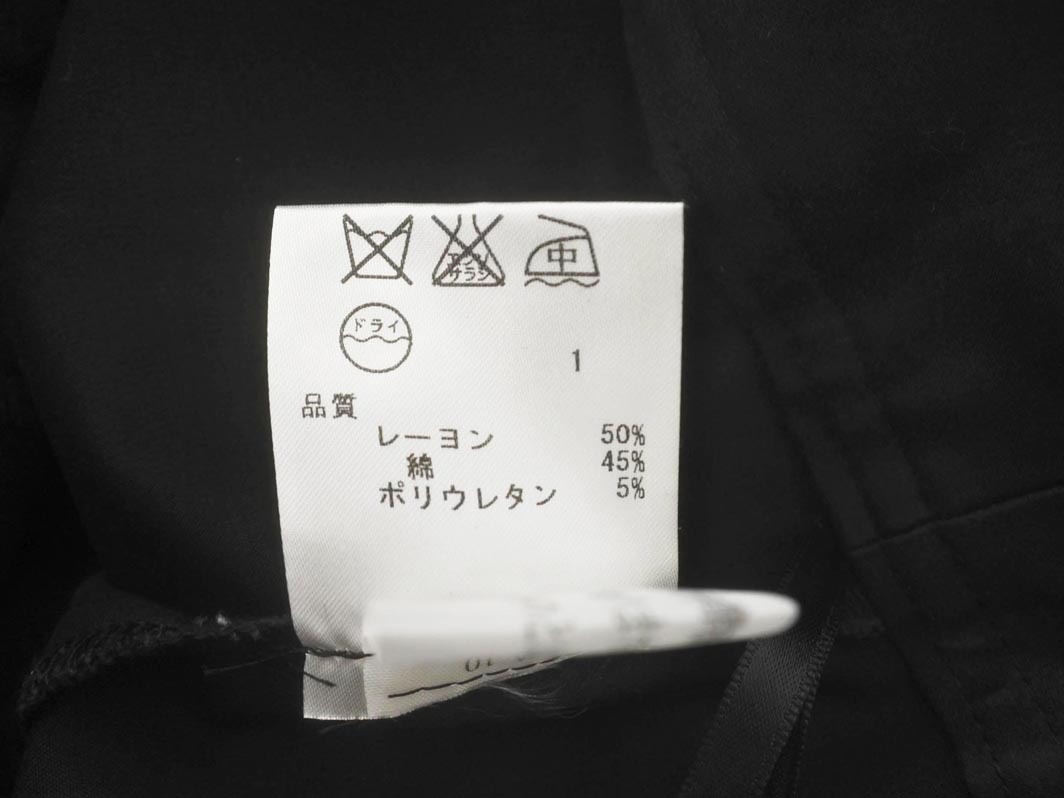 エンソ
サラシ
中
ドライ
1
品質
レーヨン 50%
綿 45%
ポリウレタン 5%